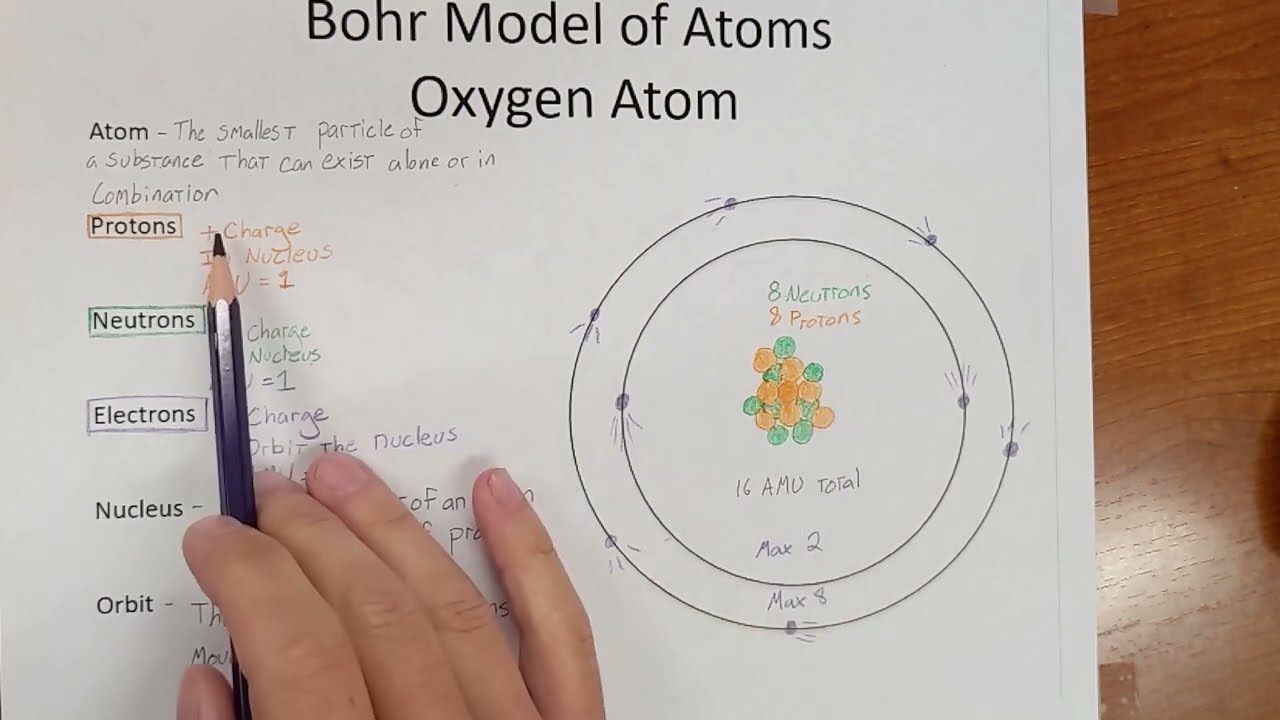 Bohr Model of Atoms
Oxygen Atom
Atom - The smallest particle of
a substance that can exist alone or in
combination
Protons + Charge
Nucleus
= 1
Neutrons Charge
Nucleus
= 1
Electrons Charge
Orbit the nucleus
Nucleus - of an
Orbit -
8 Neutrons
8 Protons
16 AMU Total
Max 2
Max 8